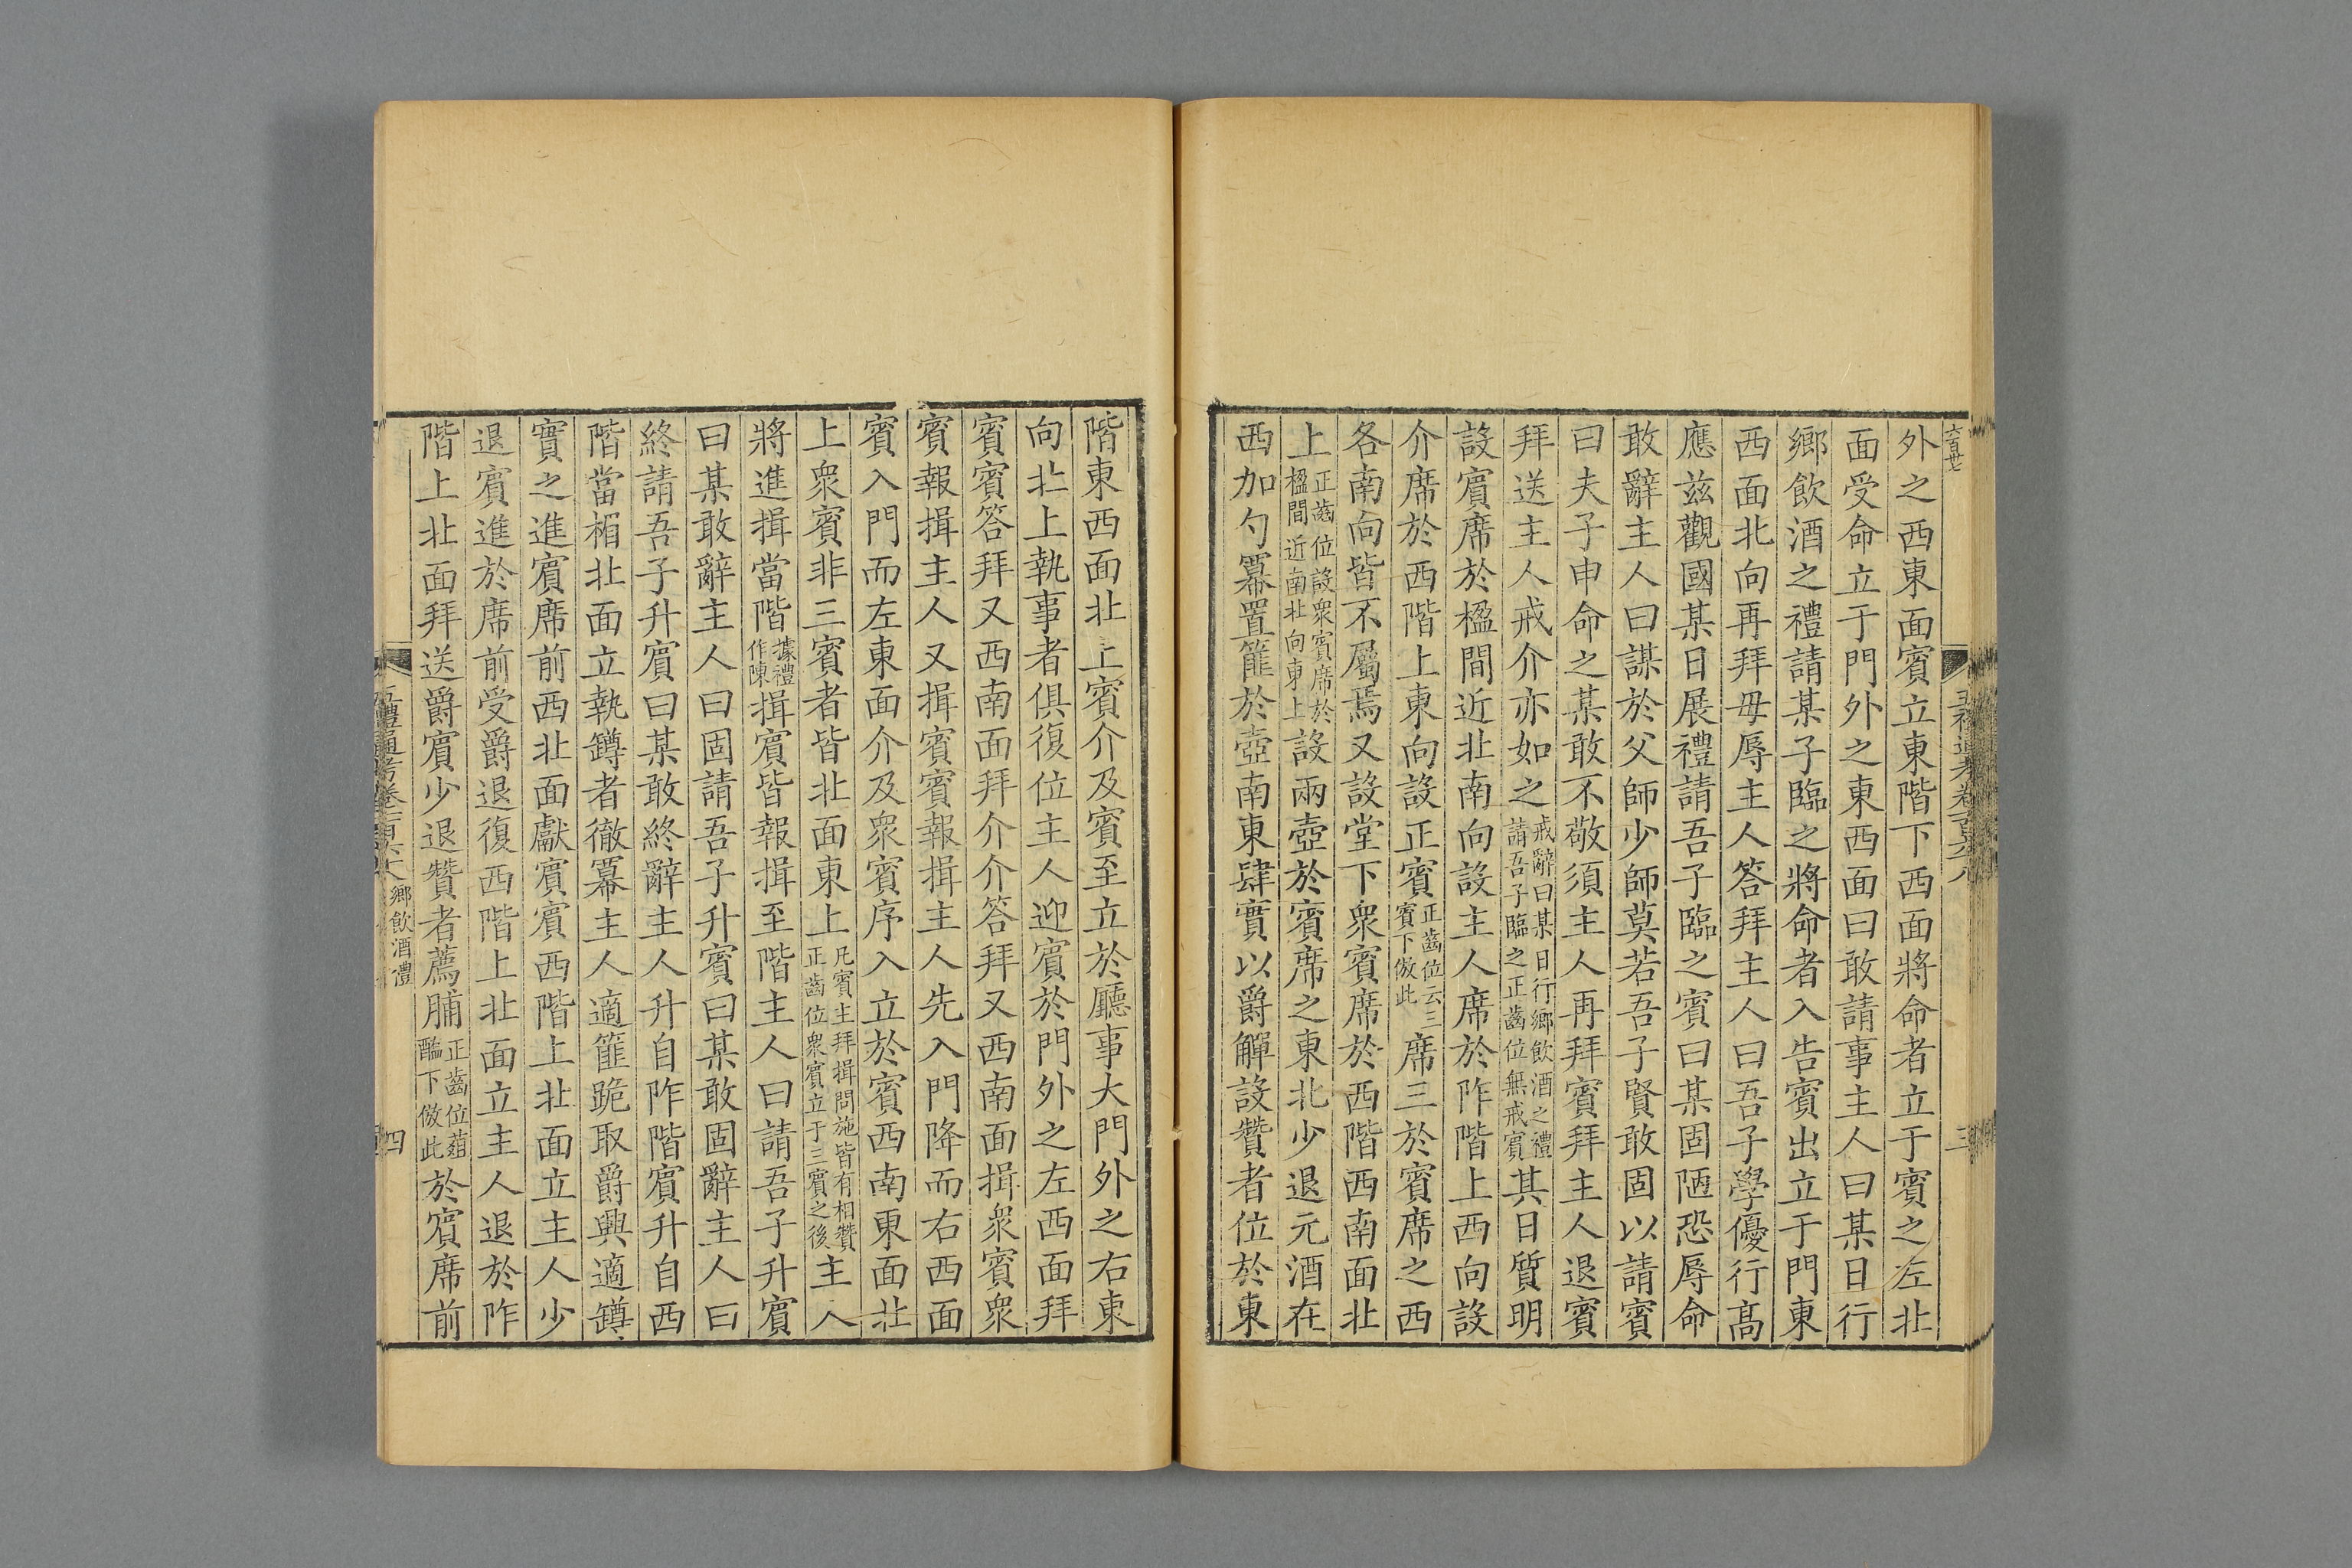 六百廿
外之西東面賓立東階下西面將命者立于賓之左北
面受命立于門外之東西面曰敢請事主人曰某日行
鄉飲酒之禮請某子臨之將命者入告賓出立于門東
西面北向再拜毋辱主人答拜主人曰吾子學優行高
應兹觀國某日展禮請吾子臨之賓曰某固陋恐辱命
敢辭主人曰謀於父師少師莫若吾子賢敢固以請賓
曰夫子申命之某敢不敬須主人再拜賓拜主人退賓
拜送主人戒介亦如之戒辭曰某日行鄉飲酒之禮請吾子臨之正齒位無戒賓其日質明
設賓席於楹間近北南向設主人席於阼階上西向設
介席於西階上東向設正賓正齒位云三賓下倣此席三於賓席之西
各南向皆不屬焉又設堂下衆賓席於西階西南面北
上正齒位設衆賓席於楹間近南北向東上設兩壺於賓席之東北少退元酒在
西加勺冪置篚於壺南東肆實以爵觶設贊者位於東
三
階東西面北上賓介及賓至立於廳事大門外之右東
向北上執事者俱復位主人迎賓於門外之左西面拜
賓賓答拜又西南面拜介介答拜又西南面揖衆賓衆
賓報揖主人又揖賓賓報揖主人先入門降而右西面
賓入門而左東面介及衆賓序入立於賓西南東面北
上衆賓非三賓者皆北面東上凡賓主拜揖問施皆有相贊正齒位衆賓立于三賓之後主人
將進揖當階據禮作陳揖賓皆報揖至階主人曰請吾子升賓
曰某敢辭主人曰固請吾子升賓曰某敢固辭主人曰
終請吾子升賓曰某敢終辭主人升自阼階賓升自西
階當楣北面立執罇者徹冪主人適篚跪取爵興適罇
實之進賓席前西北面獻賓賓西階上北面立主人少
退賓進於席前受爵退復西階上北面立主人退於阼
階上北面拜送爵賓少退贊者薦脯正齒位葅醢下倣此於賓席前
鄉飲酒禮
四